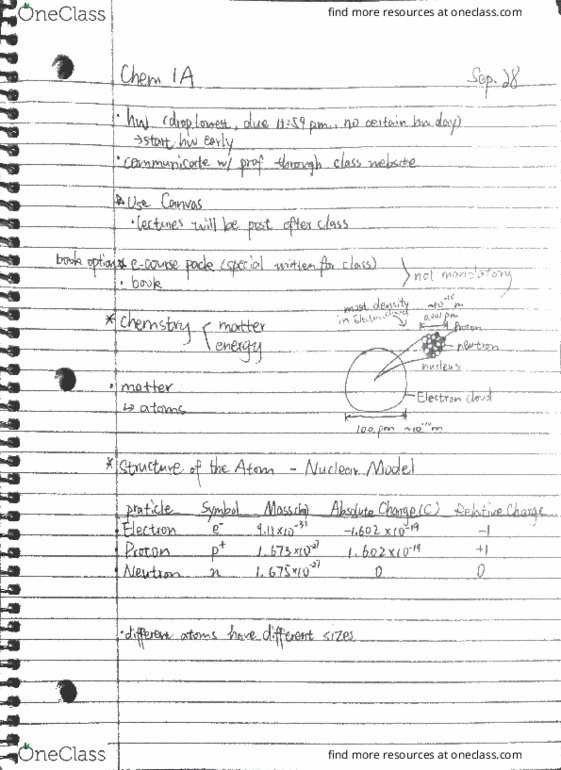 OneClass
find more resources at oneclass.com
Chem 1A
Sep. 28
• hw (drop lowest, due 11:59 pm, no certain hw day)
→ start hw early
• communicate w/ prof through class website
Use Canvas
• lectures will be post after class
book option * e-course pack (special written for class)
• book
not mandatory
* chemstry { matter
energy
• matter
↳ atoms
most density
~10⁻¹⁵ m
0.001 pm
proton
neutron
nucleus
Electron cloud
100 pm ~10⁻¹⁰ m
* Structure of the Atom - Nuclear Model
praticle Symbol Mass Absolute Charge (C) Relative Charge
Electron e⁻ 9.11×10⁻³¹ -1.602×10⁻¹⁹ -1
Proton p⁺ 1.673×10⁻²⁷ 1.602×10⁻¹⁹ +1
Neutron n 1.675×10⁻²⁷ 0 0
• different atoms have different sizes
OneClass
find more resources at oneclass.com